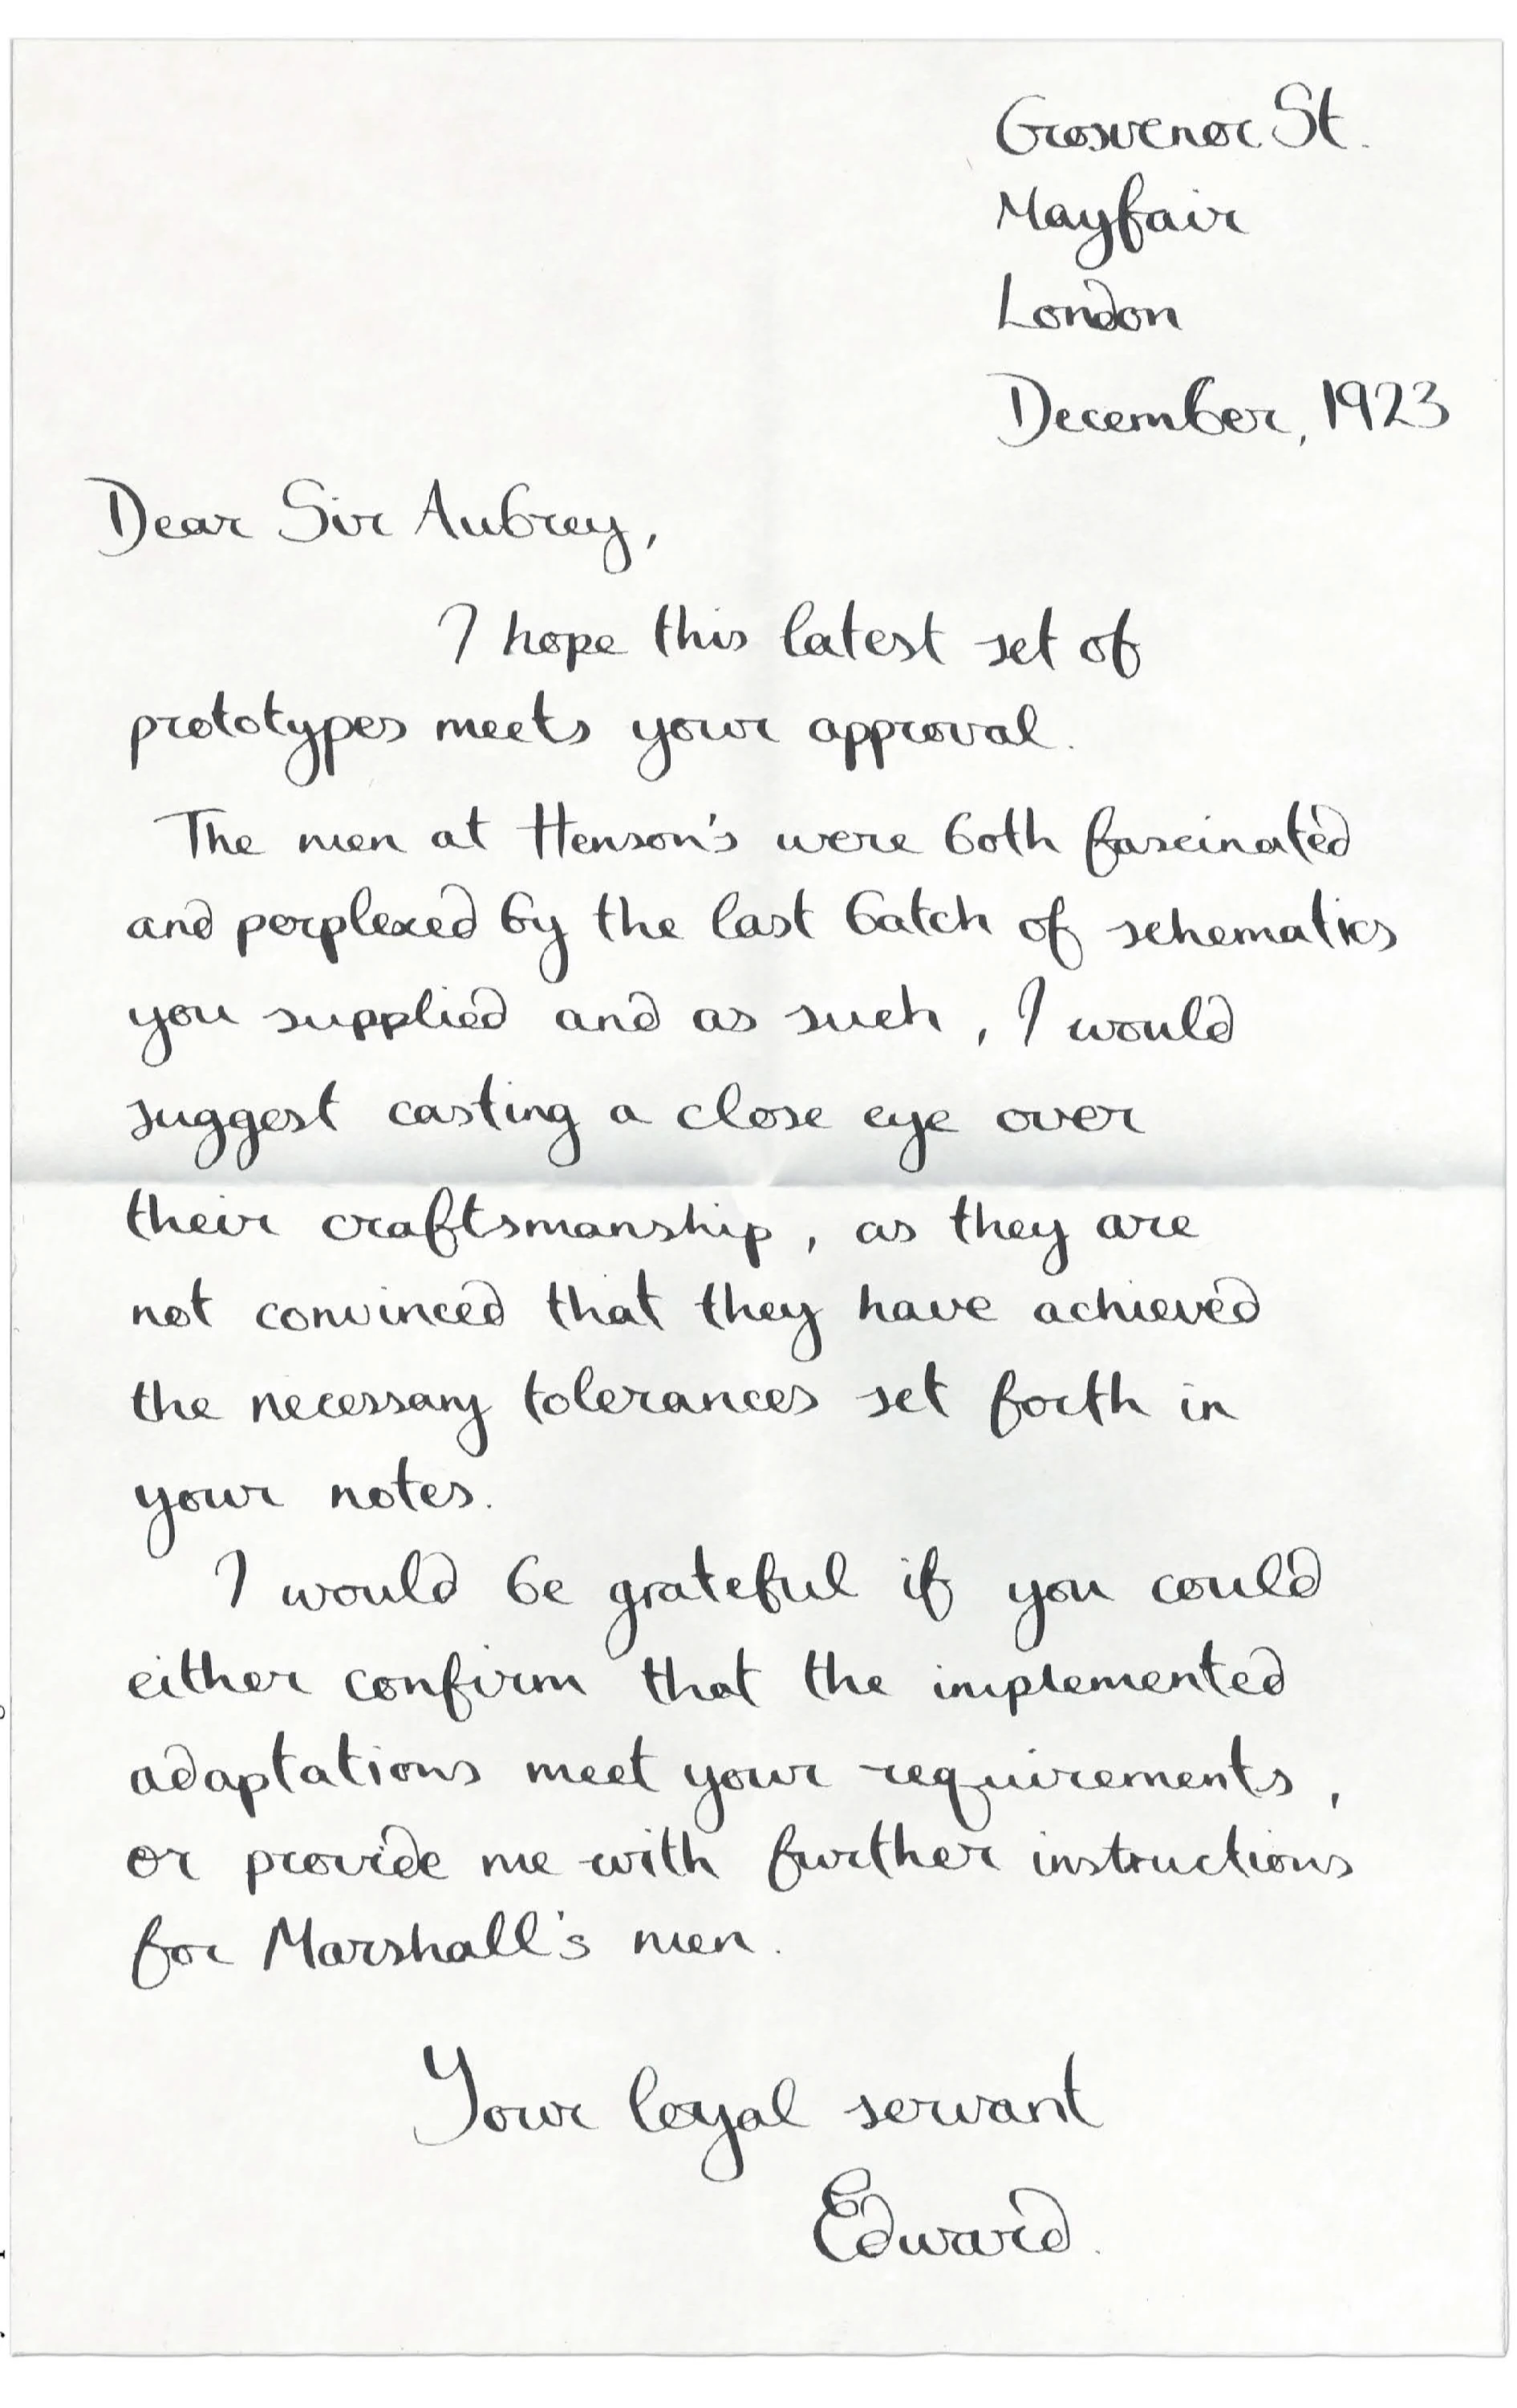 Grosvenor St.
Mayfair
London
December, 1923
Dear Sir Aubrey,
I hope this latest set of
prototypes meets your approval.
The men at Henson's were both fascinated
and perplexed by the last batch of schematics
you supplied and as such, I would
suggest casting a close eye over
their craftsmanship, as they are
not convinced that they have achieved
the necessary tolerances set forth in
your notes.
I would be grateful if you could
either confirm that the implemented
adaptations meet your requirements,
or provide me with further instructions
for Marshall's men.
Your loyal servant
Edward.